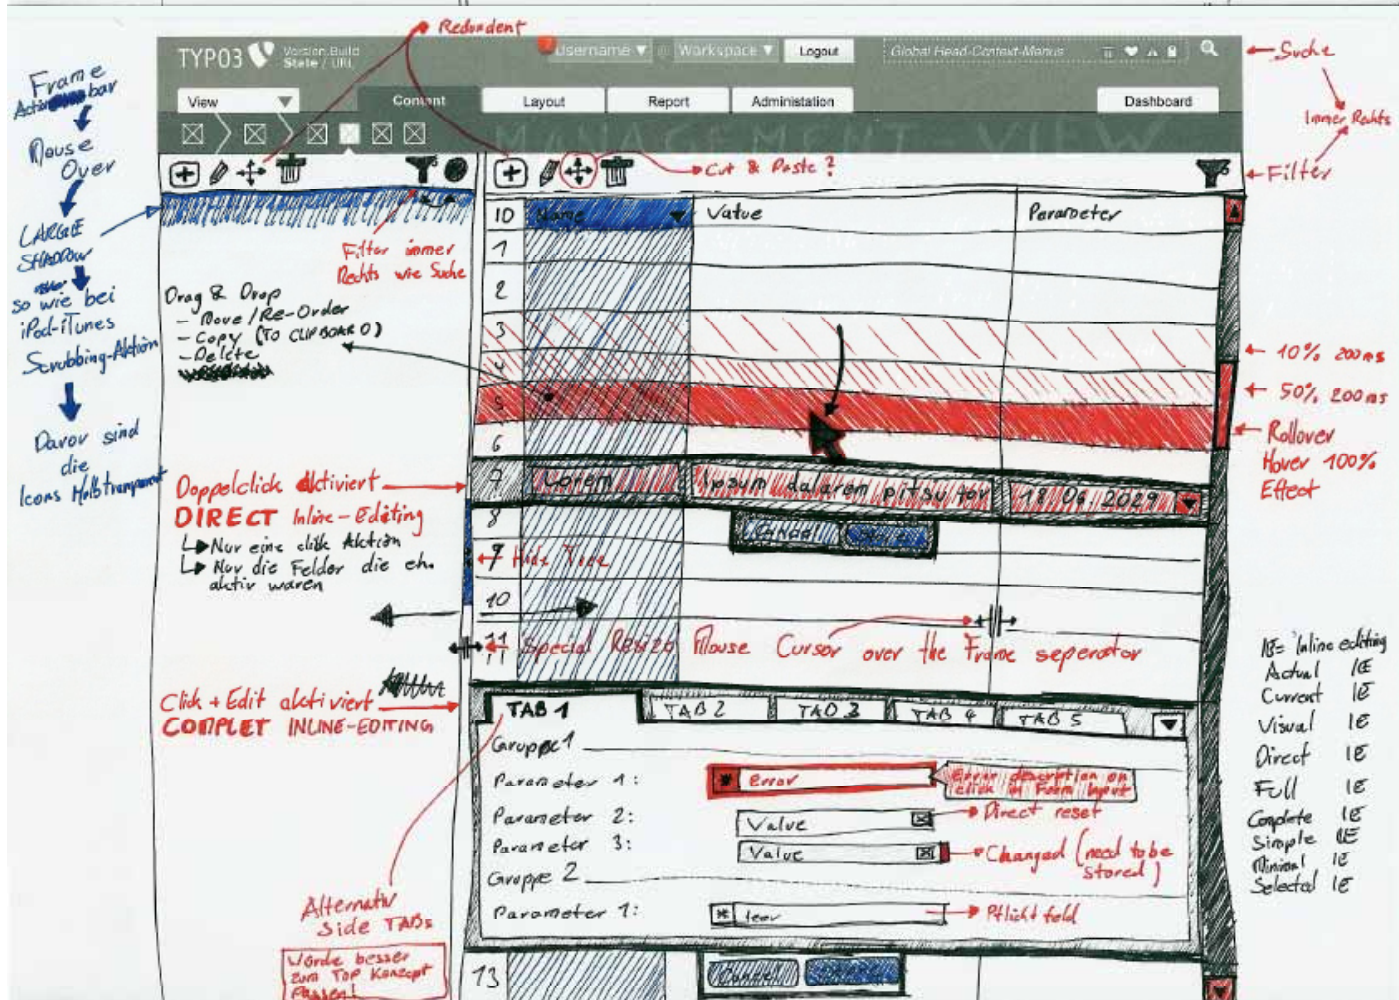 Redundent
TYPO3 Version.Build
State / URL
Username @ Workspace Logout Global Head-Context-Menus
View Content Layout Report Administation Dashboard
MANAGEMENT VIEW
Suche
Immer Rechts
Filter
Cut & Paste?
Frame
bar
Mouse
Over
LARGE
SHADOW
so wie bei
iPod-iTunes
Scrubbing-Aktion
Davor sind
die
Icons Halbtransparent
Filter immer
Rechts wie Suche
Drag & Drop
- Move/Re-Order
- Copy (TO CLIPBOARD)
- Delete
ID Name Value Parameter
1
2
3
4
5
6
7 Lorem Ipsum dolorem pitsu tor 18 06 2029
8
Cancel
9 Hide Tree
10
11
10% 200ms
50% 200ms
Rollover
Hover 100%
Effect
Doppelclick aktiviert
DIRECT Inline-Editing
Nur eine click Aktion
Nur die Felder die eh.
aktiv waren
Special Resize Mouse Cursor over the Frame seperator
Click + Edit aktiviert
COMPLET INLINE-EDITING
TAB 1 TAB 2 TAB 3 TAB 4 TAB 5
Gruppe 1
Parameter 1: * error Error description on
click in Form Input
Parameter 2: Value Direct reset
Parameter 3: Value Changed (need to be
stored)
Gruppe 2
Parameter 1: * leer Pflichtfeld
13 Cancel
Alternativ
side TABs
Würde besser
zum Top Konzept
Passen!
IE = Inline editing
Actual IE
Current IE
Visual IE
Direct IE
Full IE
Complete IE
Simple IE
Minimal IE
Selected IE